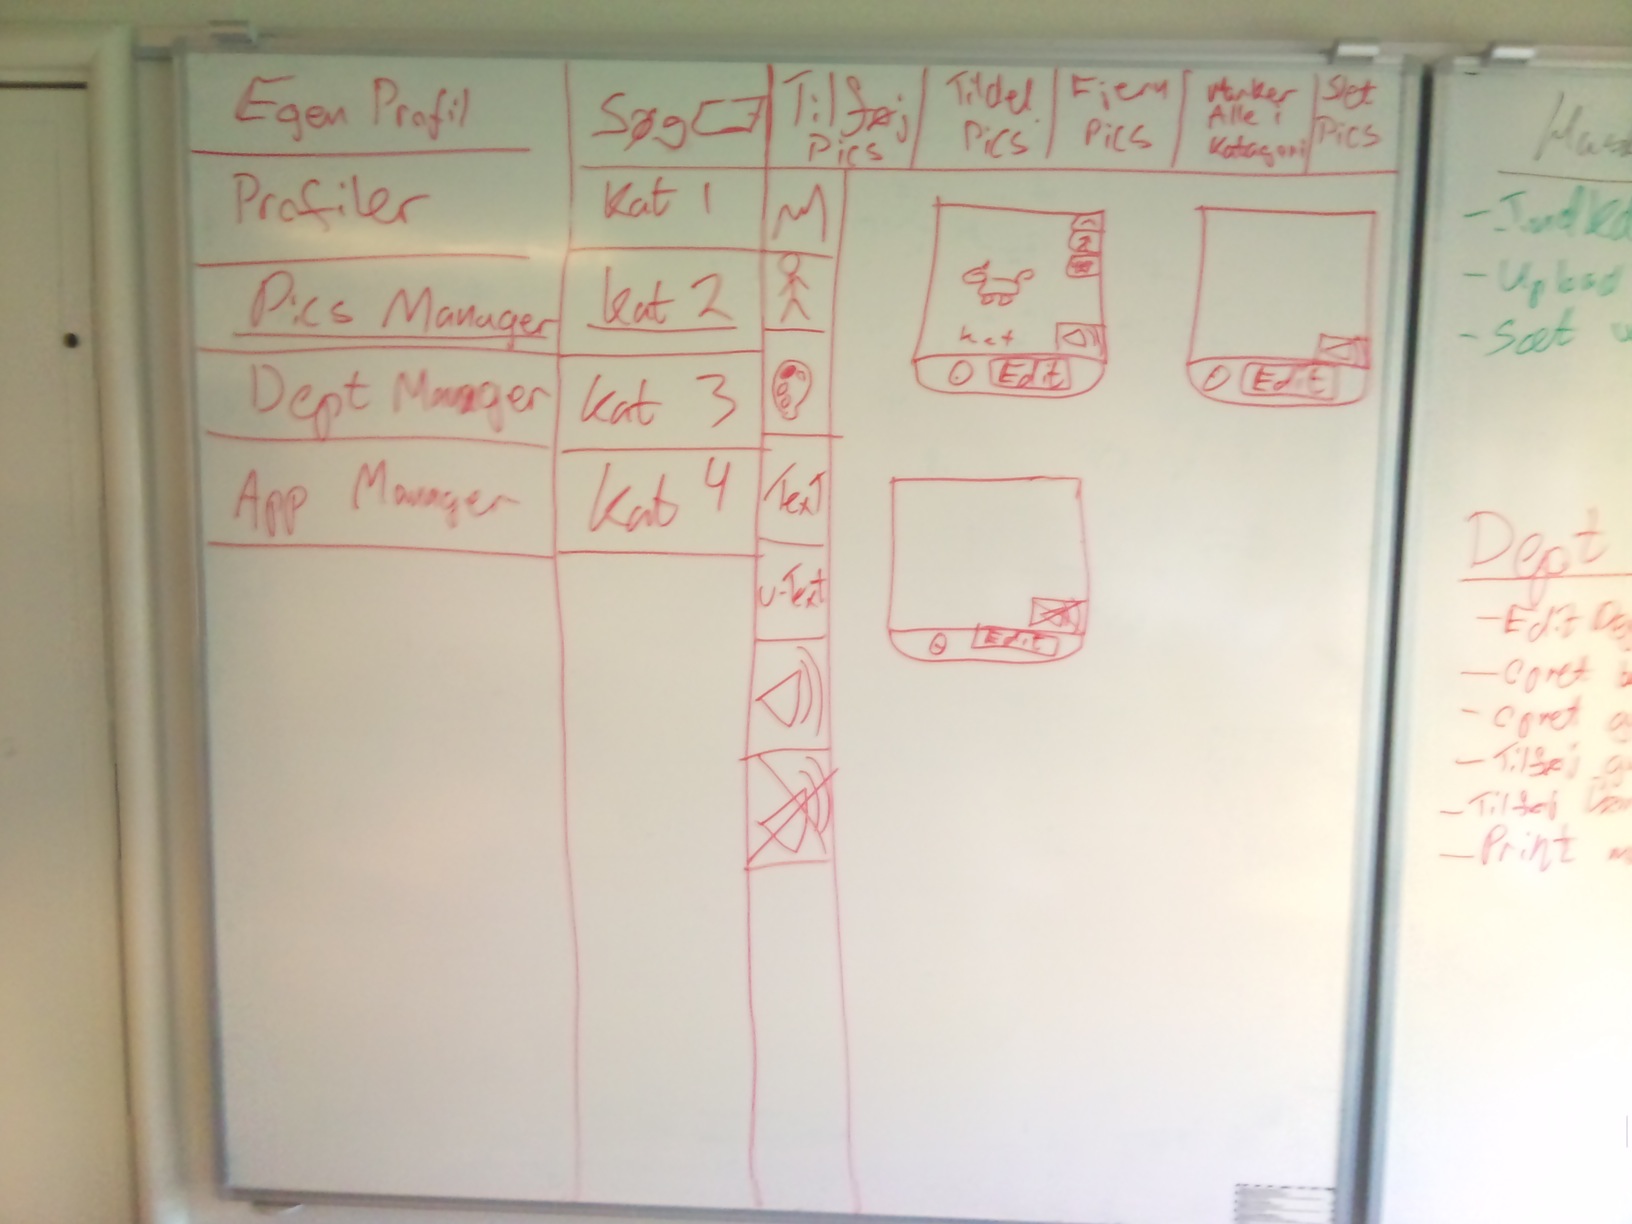 Egen Profil
Profiler
Pics Manager
Dept Manager
App Manager
Søg
Kat 1
Kat 2
Kat 3
Kat 4
Tilføj
Pics
Tildel
Pics
Fjern
Pics
Marker
Alle i
Katagori
Slet
Pics
Text
U-Text
2
Kat
Edit
Edit
Edit
- Upload
- Sæt
Dept
- Edit
- Opret
- Opret
- Tilføj
- Tilføj
- Print